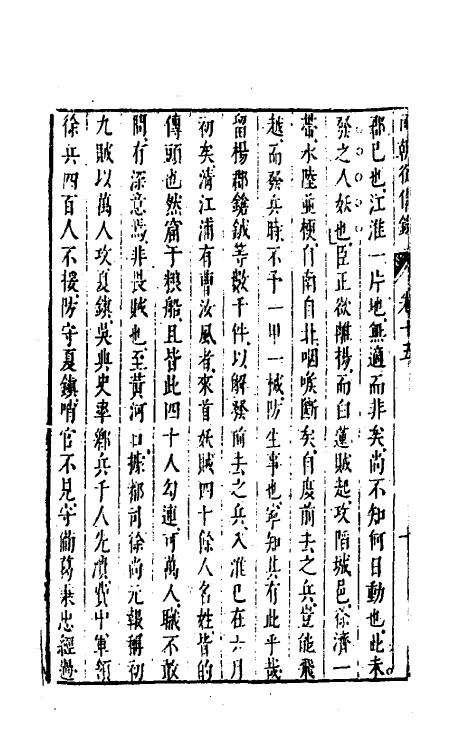 兩朝從信錄 卷十五 十
郡已也江淮一片地無適而非矣尚不知何日動也此未
發之人妖也臣正欲離揚而白蓮賊起攻陷城邑徐濟一
帶水陸並梗自南自北咽喉斷矣自度前去之兵豈能飛
越而發兵時不予一甲一械防生事也寧知其有此乎哉
留楊郡鎗銃等數千件以解發前去之兵入淮已在六月
初矣清江浦有曹汝風者來首妖賊四十餘人名姓皆的
傳頭也然窟于糧船且皆此四十人勾連可萬人職不敢
問有深意焉非畏賊也至黃河口據都司徐尚元報稱初
九賊以萬人攻夏鎮吳典史率鄉兵千人先潰費中軍領
徐兵四百人不援防守夏鎮哨官不見守備葛秉忠經過